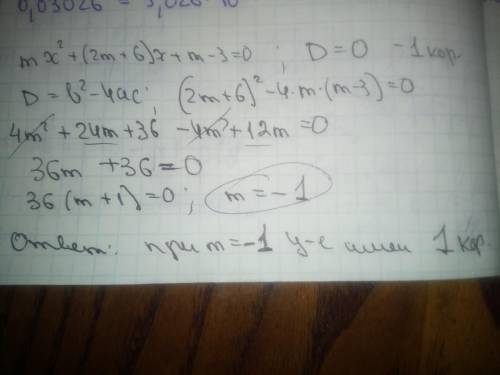 0,03026 = 3,026 · 10
mx² + (2m+6)x + m - 3 = 0 ; D = 0 - 1 кор.
D = b² - 4ac ; (2m+6)² - 4·m·(m-3) = 0
4m² + 24m + 36 - 4m² + 12m = 0
36m + 36 = 0
36(m+1) = 0 ; m = -1
Ответ: при m = -1 у-е имеет 1 кор.